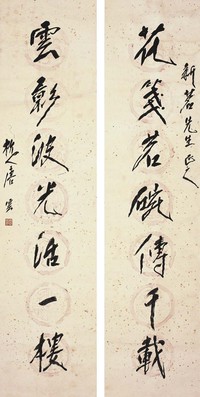 新茗先生正之
花箋茗碗傳千載
雲影波光活一樓
杭人唐雲